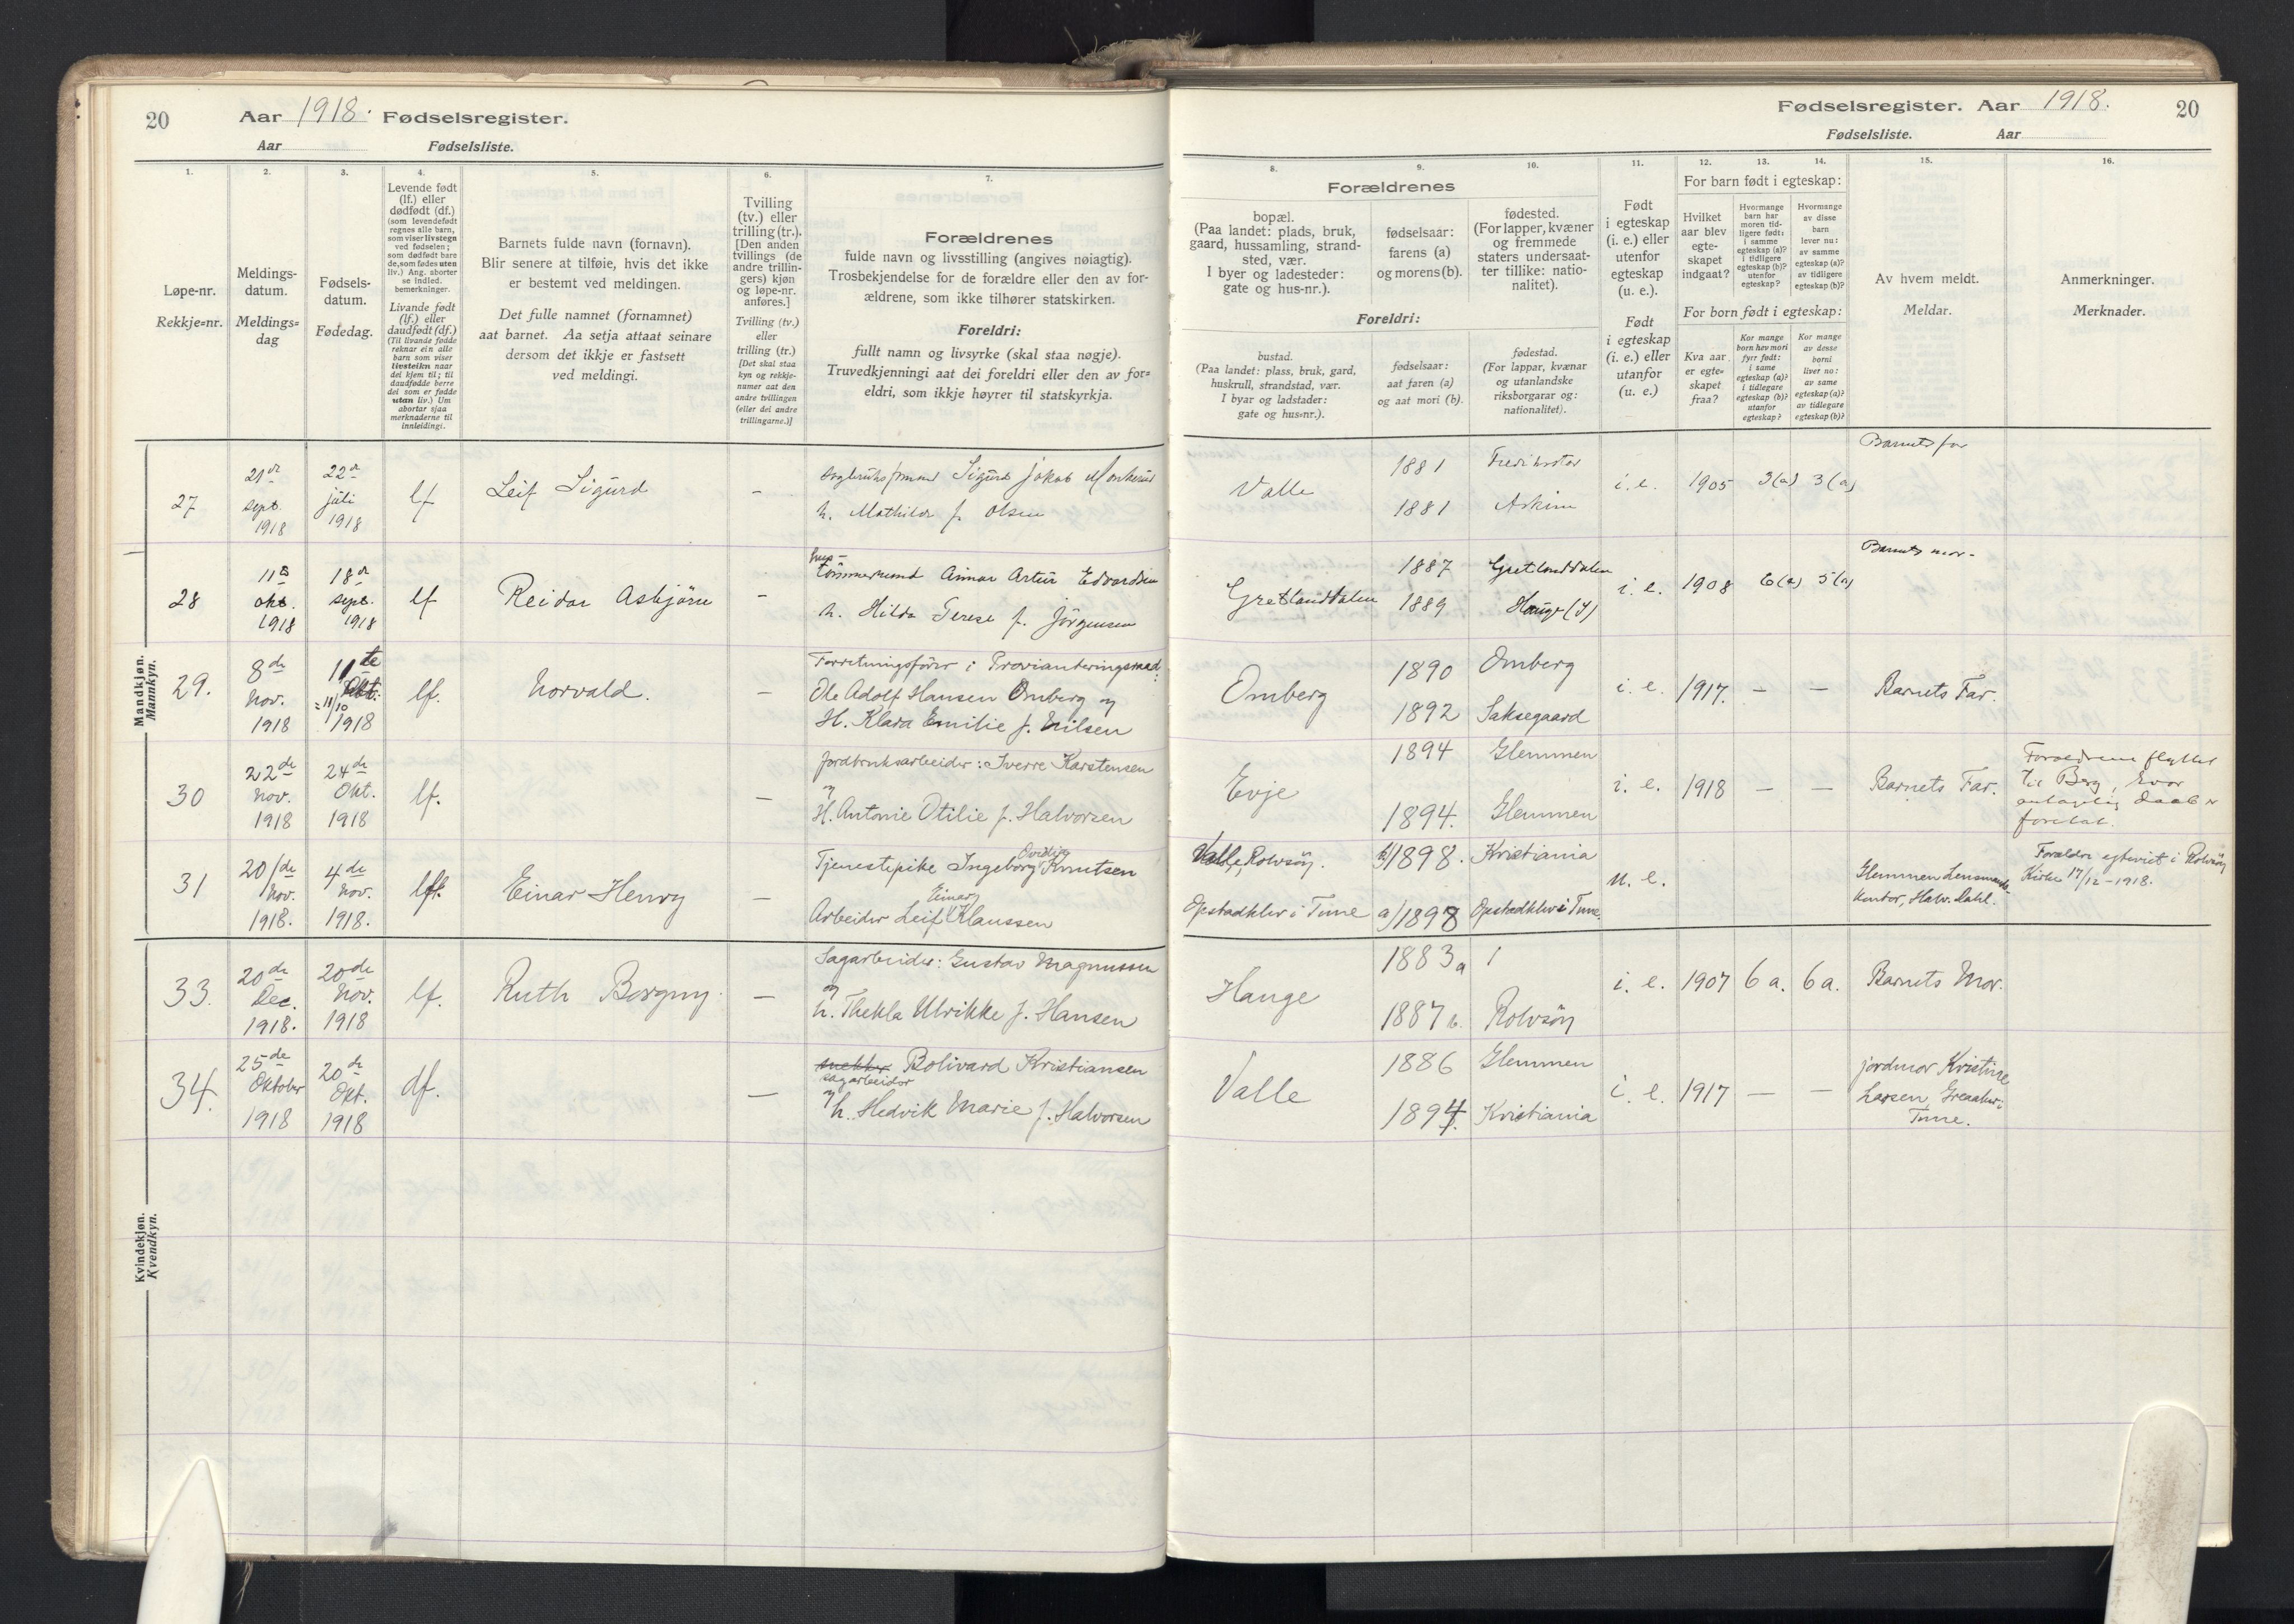 20
Aar 1918. Fødselsregister.
Aar Fødselsliste.
1.
2.
3.
4.
5.
6.
7.
Løpe-nr.
Rekkje=nr.
Meldings-
datum.
Meldings=
dag
Fødsels-
datum.
Fødedag.
Levende født
(lf.) eller
dødfødt (df.)
(som levendefødt
regnes alle barn,
som viser livstegn
ved fødselen;
som dødfødt bare
de, som fødes uten
liv.) Ang. aborter
se indled.
bemerkninger.
Livande født
(lf.) eller
daudfødt (df.)
(Til livande fødde
reknar ein alle
barn som viser
livsteikn naar
dei kjem til; til
daudfødde berre
dei som er fødde
utan liv.) Um
abortar sjaa
merknaderne til
innleidingi.
Barnets fulde navn (fornavn).
Blir senere at tilføie, hvis det ikke
er bestemt ved meldingen.
Det fulle namnet (fornamnet)
aat barnet. Aa setja attaat seinare
dersom det ikkje er fastsett
ved meldingi.
Tvilling
(tv.) eller
trilling (tr.).
[Den anden
tvillings (de
andre trillin-
gers) kjøn
og løpe-nr.
anføres.]
Tvilling (tv.)
eller
trilling (tr.)
[Det skal staa
kyn og rekkje-
numer aat den
andre tvillingen
(eller dei andre
trillingarne.)]
Forældrenes
fulde navn og livsstilling (angives nøiagtig).
Trosbekjendelse for de forældre eller den av for-
ældrene, som ikke tilhører statskirken.
Foreldri:
fullt namn og livsyrke (skal staa nøgje).
Truvedkjenningi aat dei foreldri eller den av for=
eldri, som ikkje høyrer til statskyrkja.
Mandkjøn.
Mannkyn.
27
21de
sept.
1918
22de
juli
1918
lf
Leif Sigurd
-
Sigurd Jakob
h. Mathilde f. Olsen
28
11te
okt.
1918
18de
sept.
1918
lf
Reidar Asbjørn
-
hus-
tømmermand Einar Artur Edvardsen
h. Hilda Terese f. Jørgensen
29.
8de
Nov.
1918
11te
Okt.
= 11/10
1918
lf.
Norvald.
-
Forretningsfører i Provianteringsraad:
Ole Adolf Hansen Omberg og
H. Klara Emilie f. Nilsen
30
22de
Nov.
1918
24de
Okt.
1918
lf.
-
Jordbruksarbeider: Sverre Karstensen
og
H. Antonie Otilie f. Halvorsen
31
20/de
Nov.
1918.
4de
Nov.
1918.
lf.
Einar Henry
-
Tjenestepike Ingeborg Ovidia Knutsen
Arbeider Leif Einar Klaussen
Kvindekjøn.
Kvendkyn.
33.
20de
Dec.
1918.
20de
Nov.
1918
lf.
Ruth Borgny.
-
Sagarbeider: Gustav Magnussen
og
h. Thekla Ulrikke f. Hansen
34.
25de
Oktober
1918
20de
Okt.
1918
df.
-
snekker Bolivard Kristiansen
sagarbeider
og h. Hedvik Marie f. Halvorsen
Fødselsregister. Aar 1918.
20
Fødselsliste. Aar
8.
9.
10.
11.
12.
13.
14.
15.
16.
Forældrenes
bopæl.
(Paa landet: plads, bruk,
gaard, hussamling, strand-
sted, vær.
I byer og ladesteder:
gate og hus-nr.).
fødselsaar:
farens (a)
og morens (b).
fødested.
(For lapper, kvæner
og fremmede
staters undersaat-
ter tillike: natio-
nalitet).
Foreldri:
bustad.
(Paa landet: plass, bruk, gard,
huskrull, strandstad, vær.
I byar og ladstader:
gate og hus=nr.).
fødselsaar:
aat faren (a)
og aat mori (b).
fødestad.
(For lappar, kvænar
og utanlandske
riksborgarar og:
nationalitet).
Født
i egteskap
(i. e.) eller
utenfor
egteskap
(u. e.).
Født
i egteskap
(i. e.) eller
utanfor
(u. e.)
For barn født i egteskap:
Hvilket
aar blev
egte-
skapet
indgaat?
Hvormange
barn har
moren tid-
ligere født:
i samme
egteskap (a)?
i tidligere
egteskap (b)?
utenfor
egteskap?
Hvormange
av disse
barn
lever nu:
av samme
egteskap (a)?
av tidligere
egteskap (b)?
For born født i egteskap:
Kva aar
er egte=
skapet
fraa?
Kor mange
born hev mori
fyrr født:
i same
egteskap (a)?
i tidlegare
egteskap (b)?
utanfor
egteskap?
Kor mange
av desse
borni
liver no:
av same
egteskap (a)?
av tidlegare
egteskap (b)?
Av hvem meldt.
Meldar.
Anmerkninger.
Merknader.
Valle
1881
1881
Askim
i. e.
1905
3(a)
3(a)
Barnets far
Gretlanddalen
1887
1889
Gretlanddalen
Hauge (T)
i. e.
1908
6(a)
5(a)
Barnets mor-
Omberg
1890
1892
Omberg
Saksegaard
i. e.
1917.
-
-
Barnets Far.
Evje
1894
1894.
Glemmen
Glemmen
i. e.
1918
-
-
Barnets Far.
Forældrene flyttet
til Berg, hvor
antagelig daab er
foretat.
Valle, Rolvsøy.
b/1898.
Kristiania
Opstadklev i Tune
a/1898
Opstadklev i Tune.
u. e.
Glemmen Lensmands-
kontor, Halv. Dahl.
Forældre egteviet i Rolvsøy
Kirke 17/12-1918.
Hauge
1883 a
1887 b.
Rolvsøy
i. e.
1907
6 a.
6 a.
Barnets Mor.
Valle
1886
1894.
Glemmen
Kristiania
i. e.
1917
-
-
jordmor Kristine
Larsen, Greaaker:
Tune.